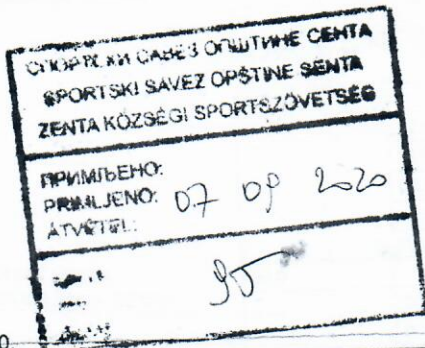 СПОРТСКИ САВЕЗ ОПШТИНЕ СЕНТА
SPORTSKI SAVEZ OPŠTINE SENTA
ZENTA KÖZSÉGI SPORTSZÖVETSÉG
ПРИМЉЕНО:
PRIMLJENO: 07 09 2020
ÁTVÉTEL: